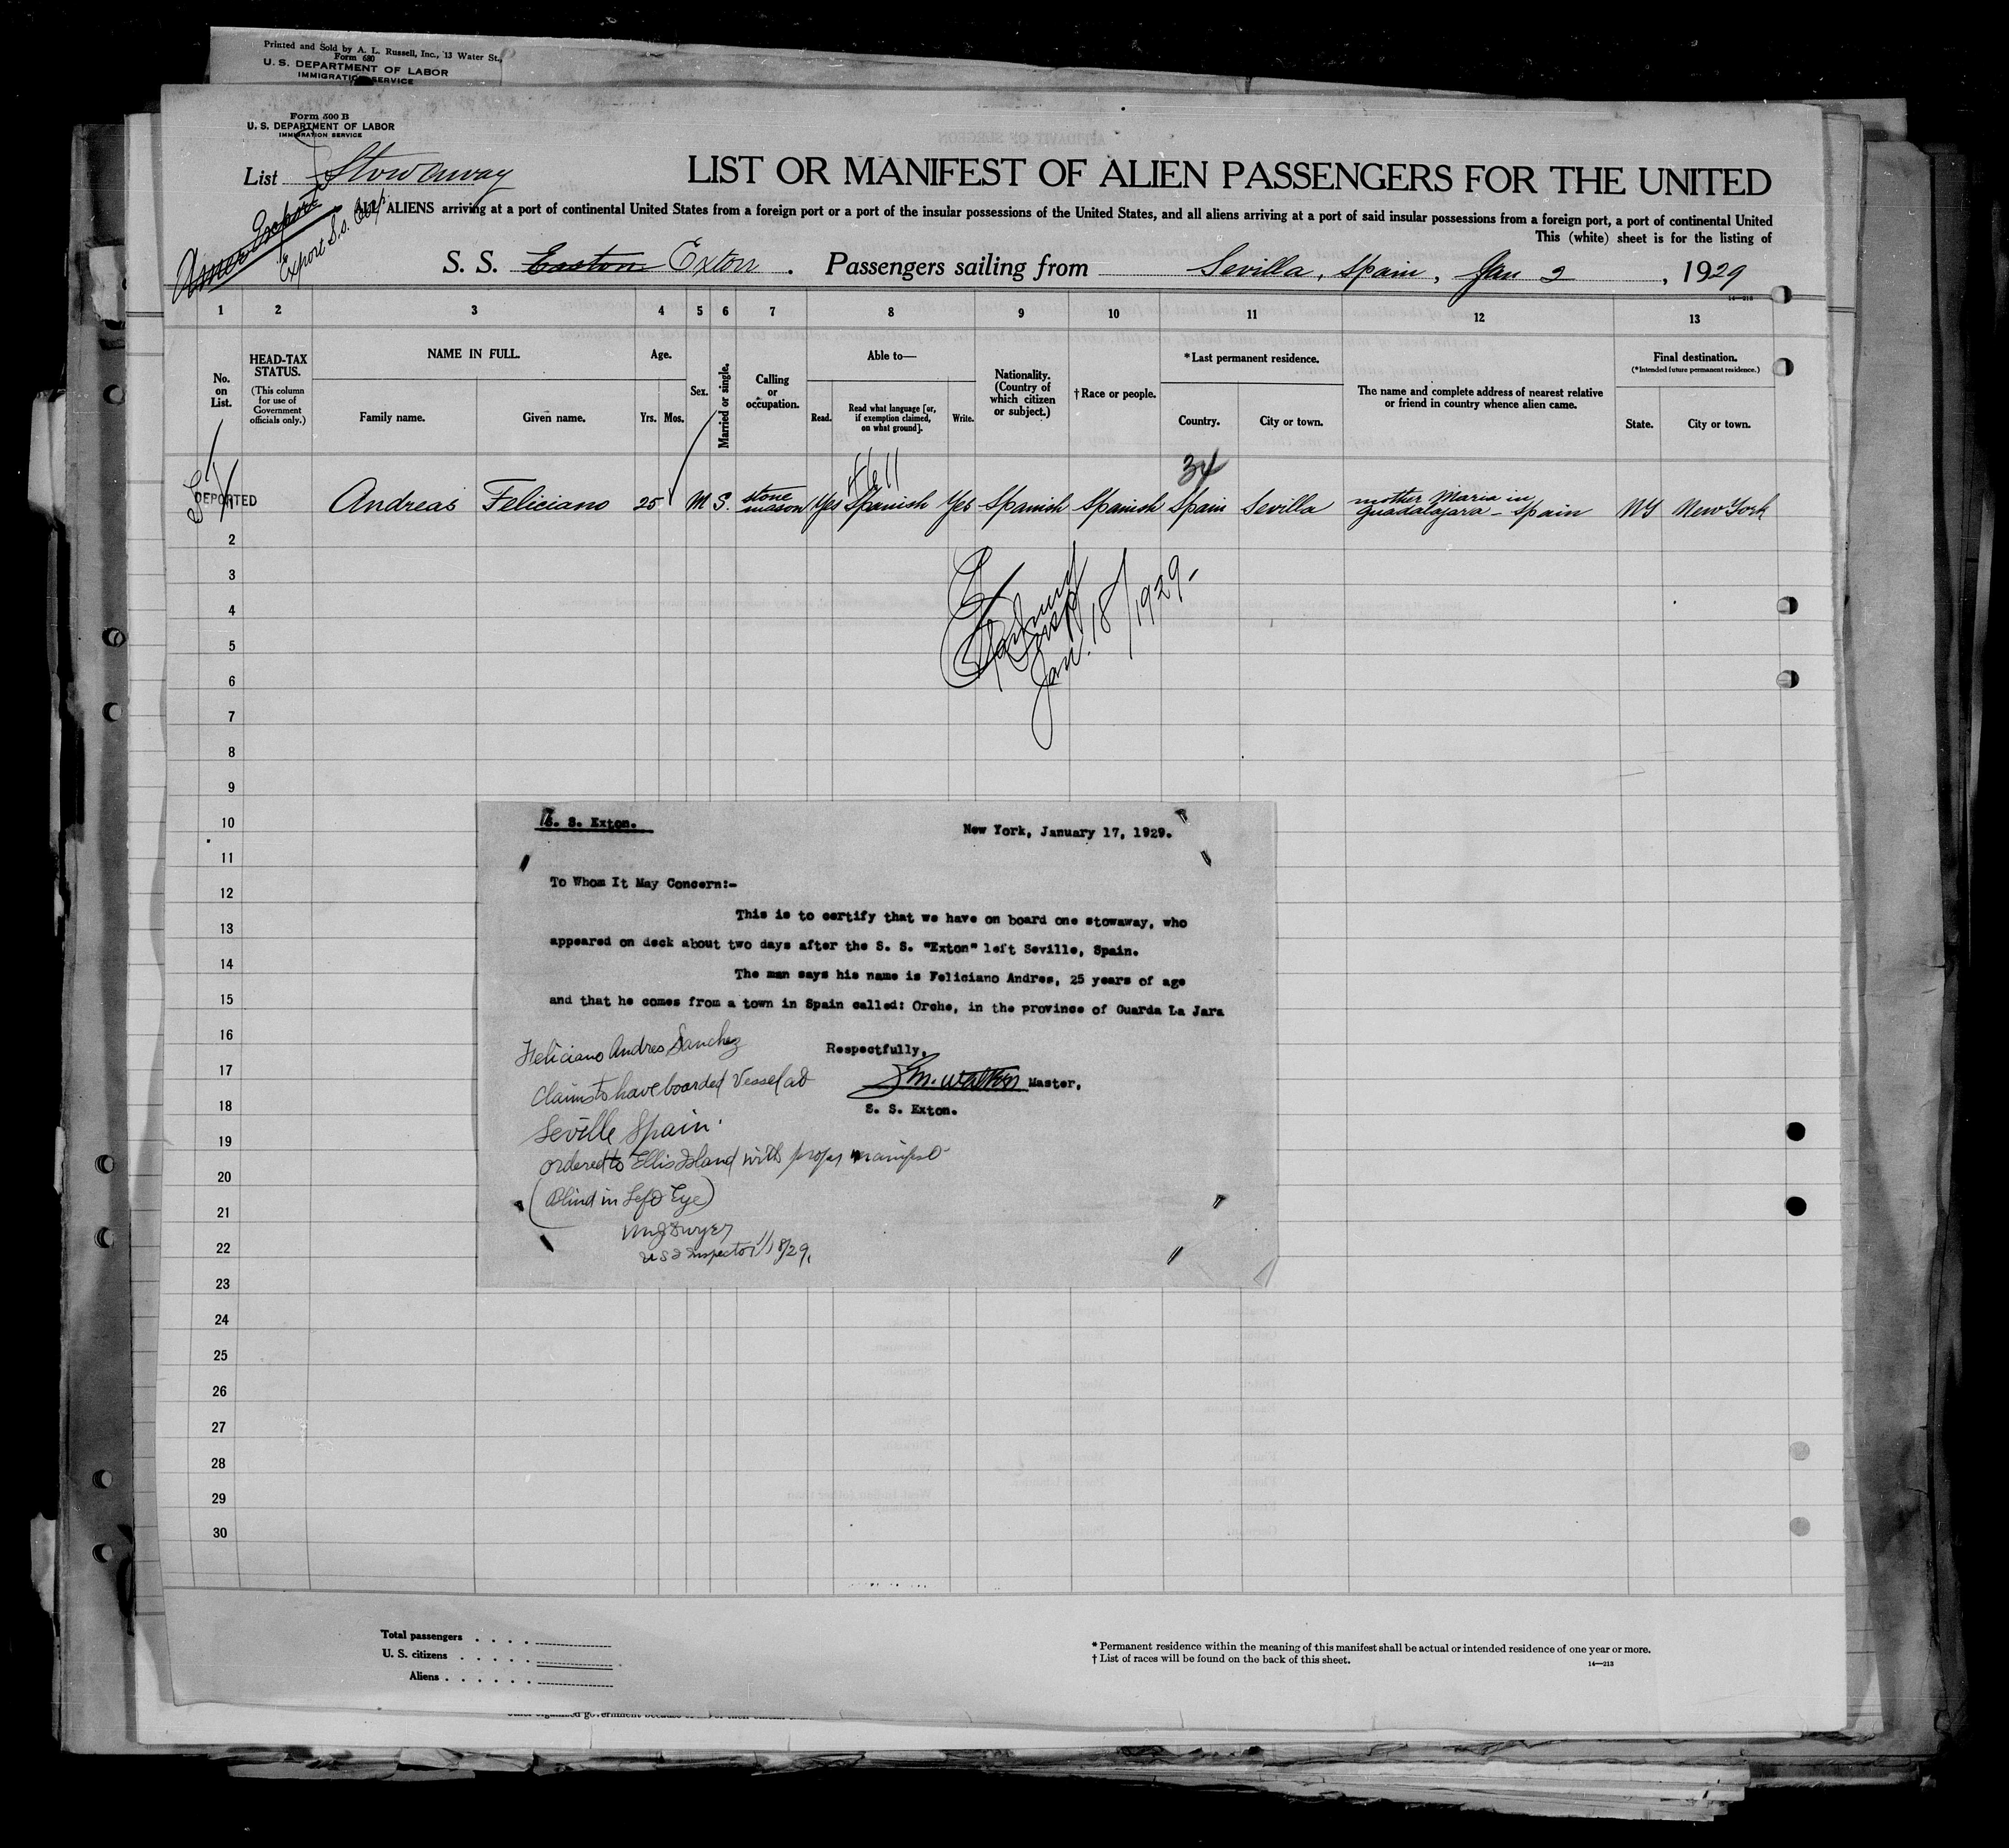 Printed and Sold by A. L. Russell, Inc., 13 Water St.,
Form 680
U. S. DEPARTMENT OF LABOR
IMMIGRATION SERVICE
Form 500 B
U. S. DEPARTMENT OF LABOR
IMMIGRATION SERVICE
List Stowaway
LIST OR MANIFEST OF ALIEN PASSENGERS FOR THE UNITED
Amer Export
Export S.S. Corp.
ALL ALIENS arriving at a port of continental United States from a foreign port or a port of the insular possessions of the United States, and all aliens arriving at a port of said insular possessions from a foreign port, a port of continental United
This (white) sheet is for the listing of
S. S. Easton Exton . Passengers sailing from Sevilla, Spain, Jan 2 , 1929
1 2 3 4 5 6 7 8 9 10 11 12 13
No. on List.
HEAD-TAX STATUS.
(This column for use of Government officials only.)
NAME IN FULL.
Family name. Given name.
Age.
Yrs. Mos.
Sex.
Married or single.
Calling or occupation.
Able to—
Read. Read what language [or, if exemption claimed, on what ground]. Write.
Nationality. (Country of which citizen or subject.)
†Race or people.
*Last permanent residence.
Country. City or town.
The name and complete address of nearest relative or friend in country whence alien came.
Final destination.
(*Intended future permanent residence.)
State. City or town.
34
DEPORTED Andreas Feliciano 25 M S. stone mason Yes Spanish Yes Spanish Spanish Spain Sevilla mother Maria in Guadalajara - Spain NY New York
2
3
4
5
6
7
8
9
10
11
12
13
14
15
16
17
18
19
20
21
22
23
24
25
26
27
28
29
30
Jan. 18/1929.
S. S. Exton.
New York, January 17, 1929.
To Whom It May Concern:-
This is to certify that we have on board one stowaway, who
appeared on deck about two days after the S. S. "Exton" left Seville, Spain.
The man says his name is Feliciano Andres, 25 years of age
and that he comes from a town in Spain called: Orche, in the province of Guarda La Jara
Respectfully,
Master,
S. S. Exton.
Feliciano Andres Sanchez
Claims to have boarded Vessel at
Seville Spain.
ordered to Ellis Island with proper manifest
(Blind in Left Eye)
Inspector 1/18/29.
Total passengers
U. S. citizens
Aliens
* Permanent residence within the meaning of this manifest shall be actual or intended residence of one year or more.
† List of races will be found on the back of this sheet.
14—213